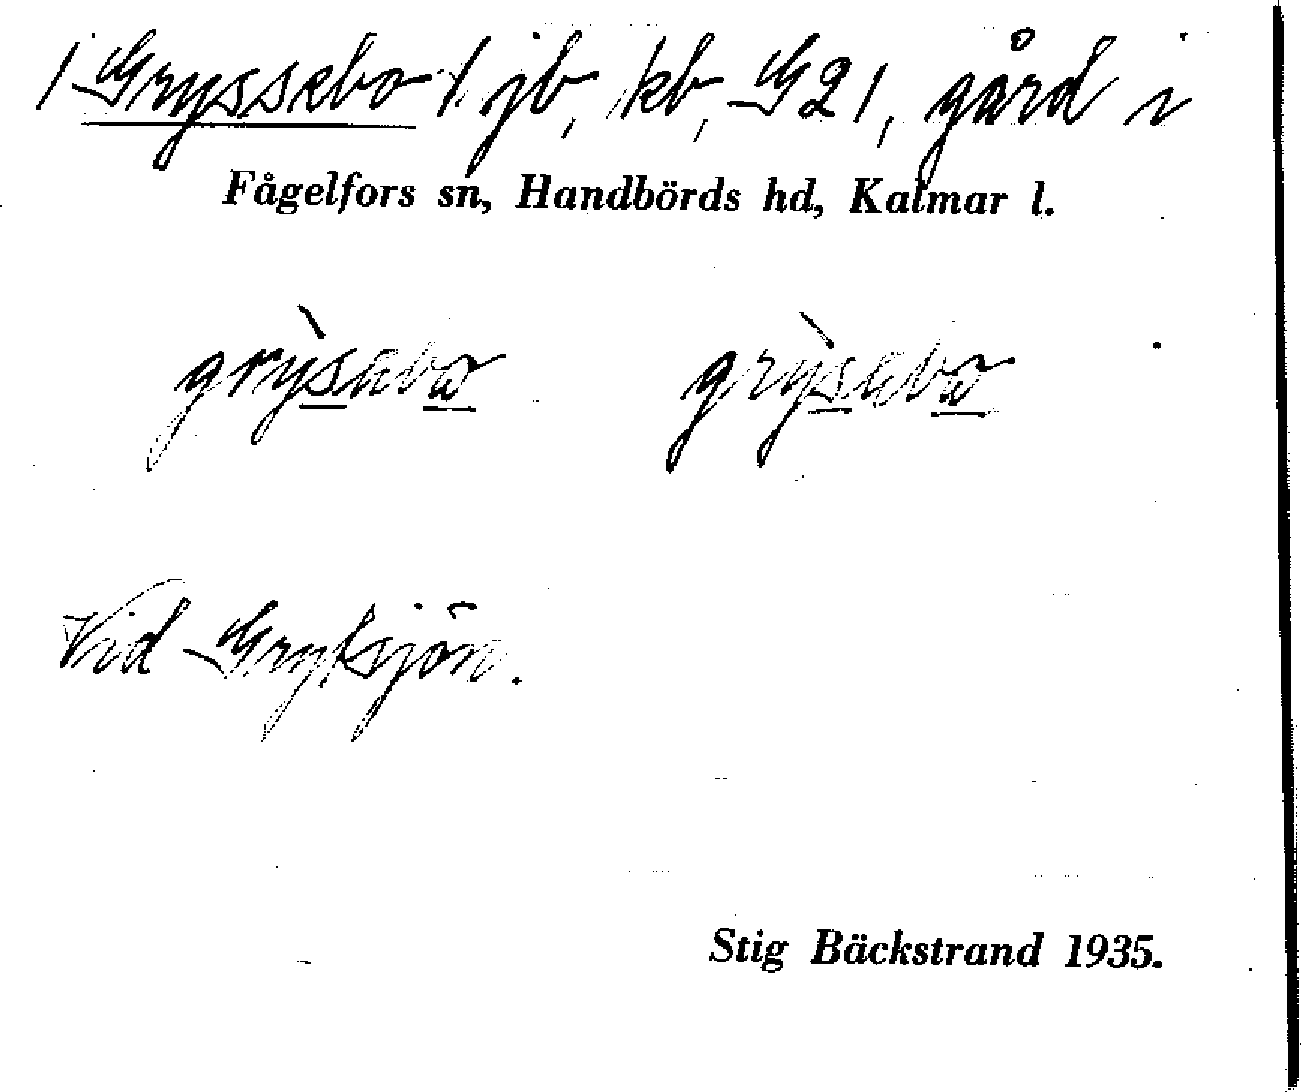 / Gryssebo / jb, kb, G21, gård i
Fågelfors sn, Handbörds hd, Kalmar l.
grỳsabo grỳsabo
Vid Gryksjön.
Stig Bäckstrand 1935.